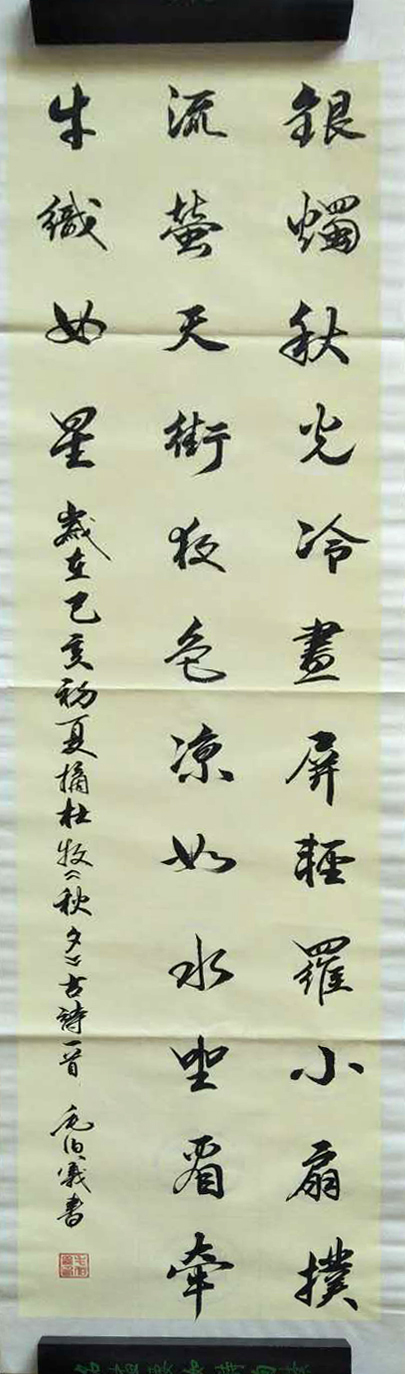 銀燭秋光冷畫屏輕羅小扇撲
流螢天街夜色凉如水坐看牽
牛織女星 歲在己亥初夏摘杜牧《秋夕》古詩一首 毛伯儀書